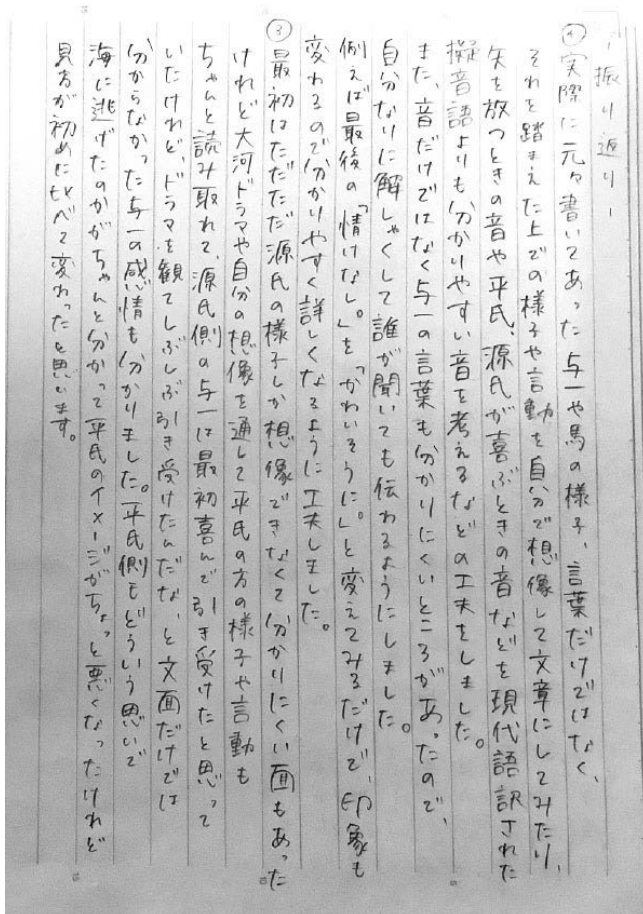 －振り返り－
④実際に元々書いてあった与一や馬の様子、言葉だけではなく、
それを踏まえた上での様子や言動を自分で想像して文章にしてみたり、
矢を放つときの音や平氏、源氏が喜ぶときの音などを現代語訳された
擬音語よりも分かりやすい音を考えるなどの工夫をしました。
また、音だけではなく与一の言葉も分かりにくいところがあったので、
自分なりに解しゃくして誰が聞いても伝わるようにしました。
例えば最後の「情けなし。」を「かわいそうに。」と変えてみるだけで、印象も
変わるので分かりやすく詳しくなるように工夫しました。
③最初はただただ源氏の様子しか想像できなくて分かりにくい面もあった
けれど大河ドラマや自分の想像を通して平氏の方の様子や言動も
ちゃんと読み取れて、源氏側の与一は最初喜んで引き受けたと思って
いたけれど、ドラマを観てしぶしぶ引き受けたんだな、と文面だけでは
分からなかった与一の感情も分かりました。平氏側もどういう思いで
海に逃げたのかがちゃんと分かって平氏のイメージがちょっと悪くなったけれど
見方が初めに比べて変わったと思います。